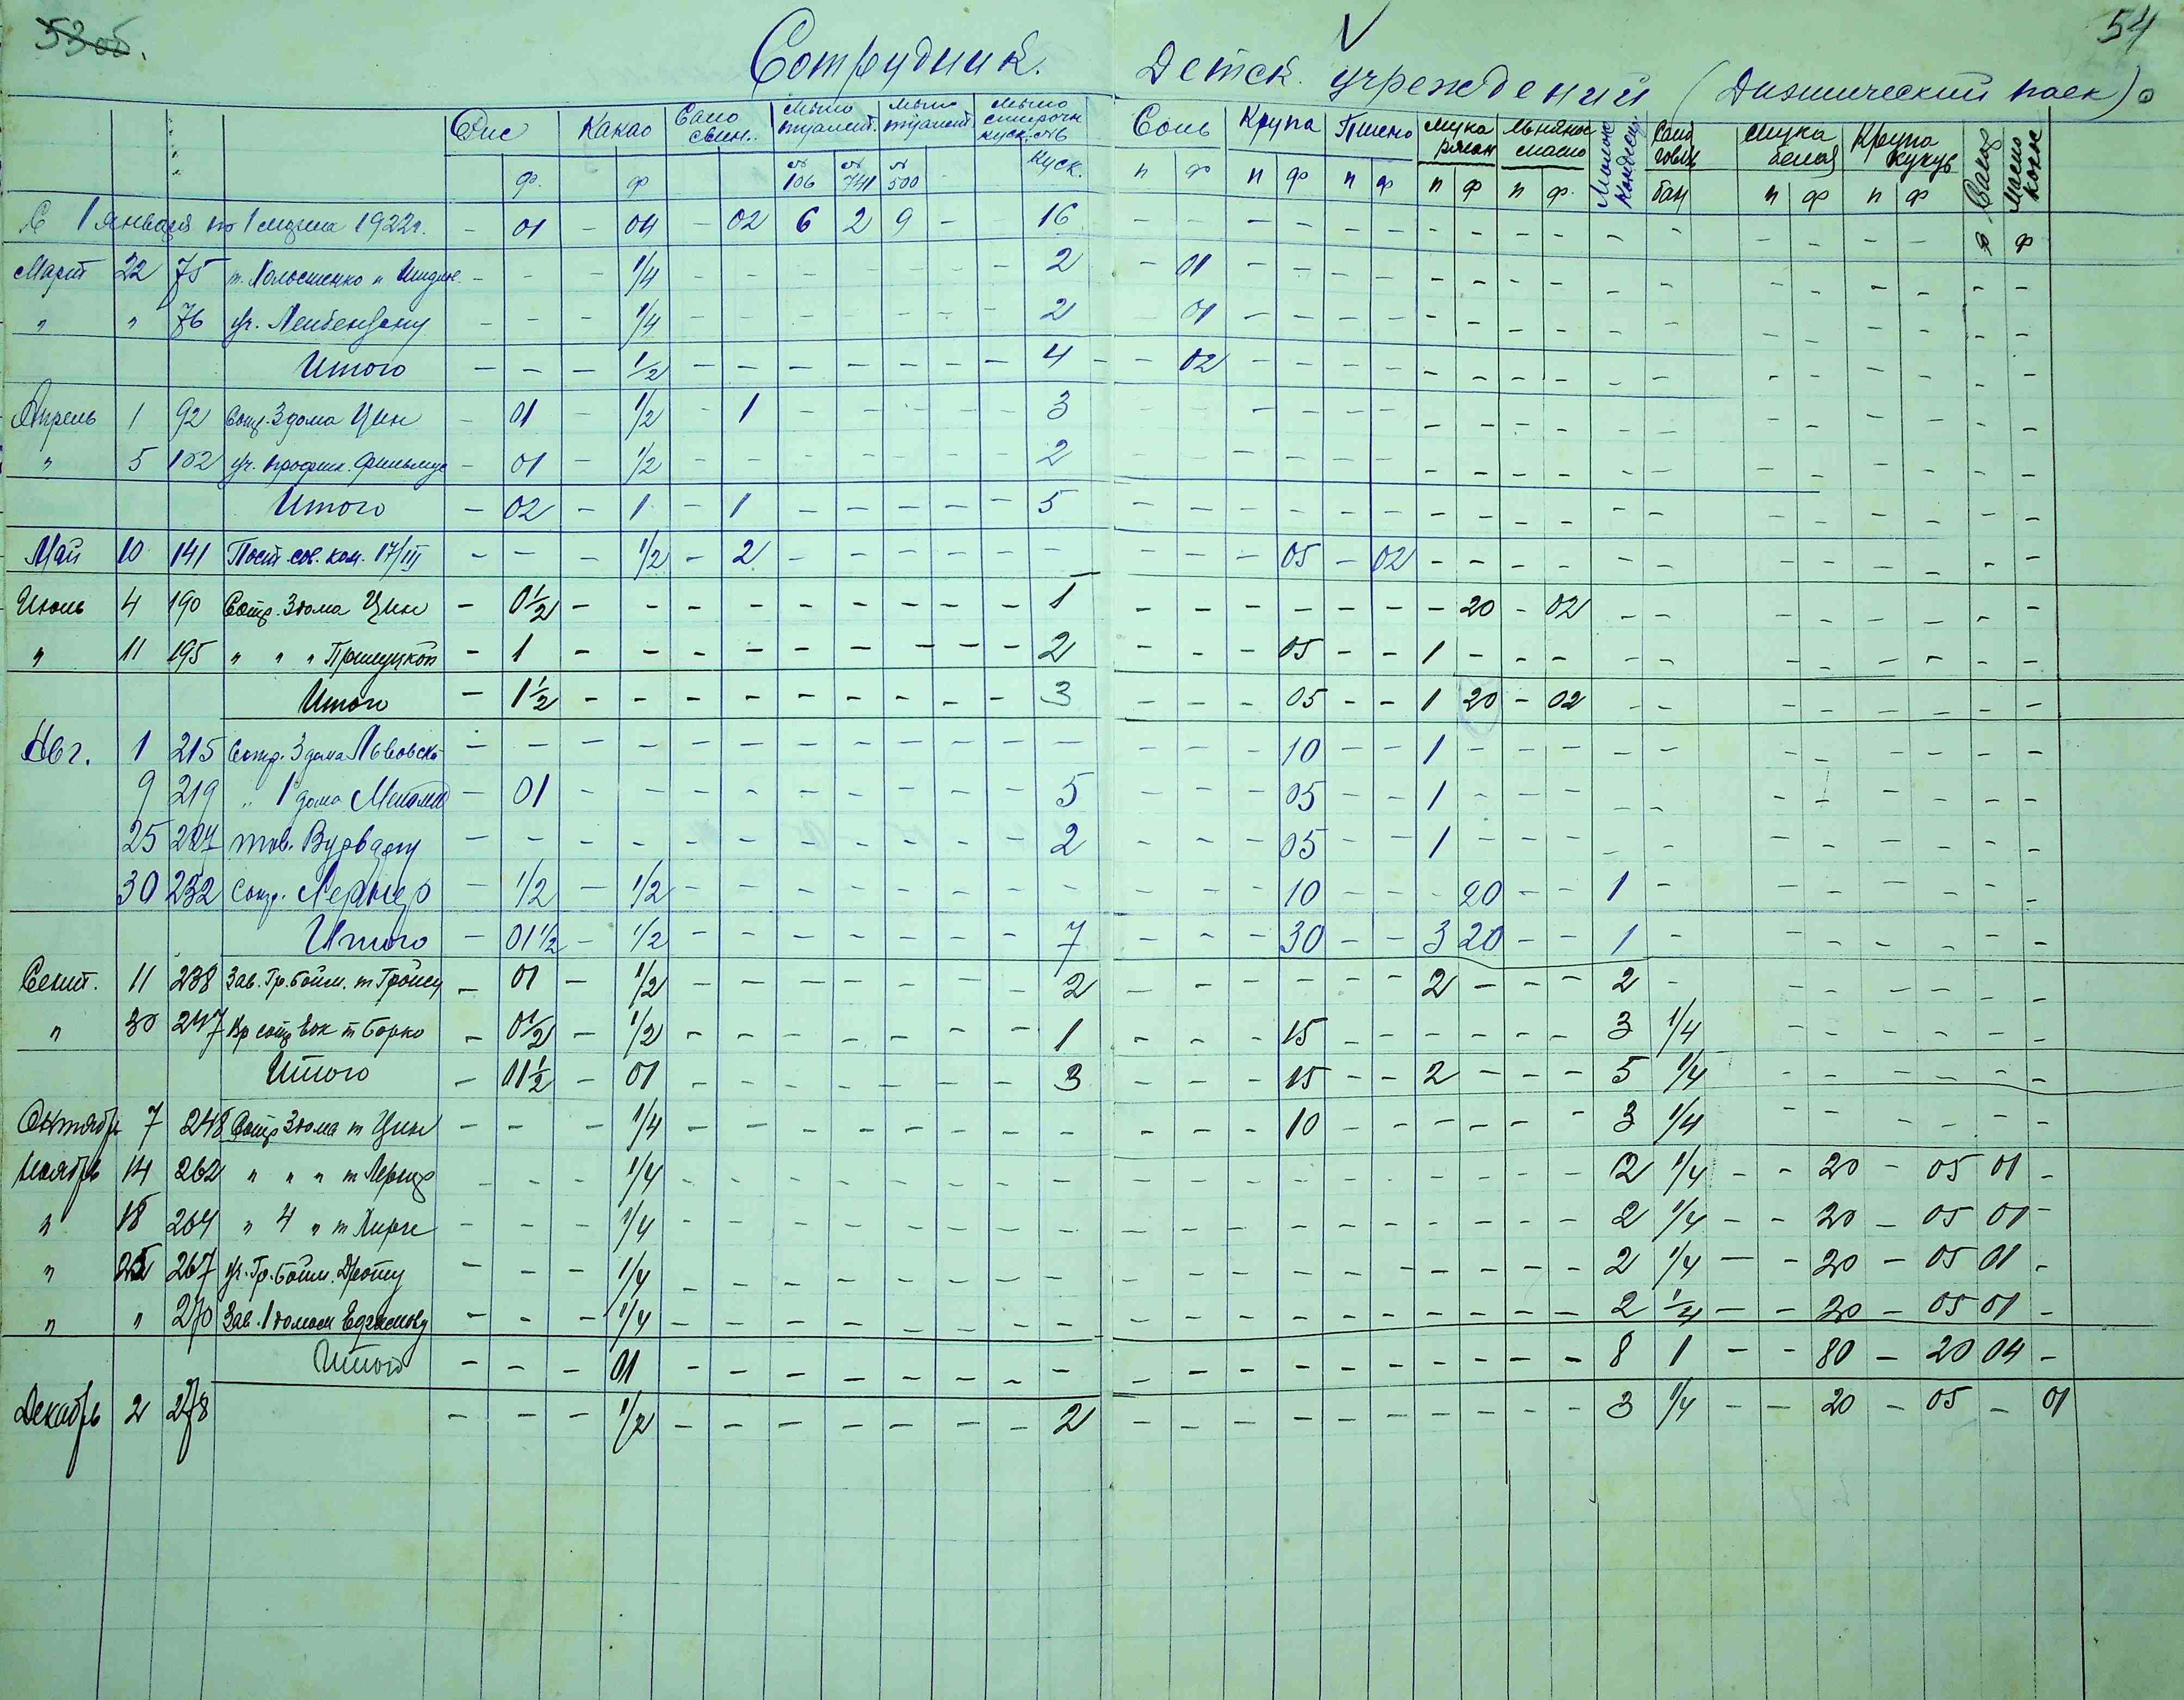 53об. 54
Сотрудник. Детск. учреждений (Диэтический паек)
Рис Какао Сало свин. Мыло туалет. Мыло туалет Мыло стирочн. куск. Соль Крупа Пшено Мука ржан Льняное масло Молоко Конденс. Сало говяж Мука белая Крупа кукуз Сахар Масло кокос
ф. ф № 106 № 741 № 500 - Куск. п ф п ф п ф п ф п ф. бан п ф п ф ф ф
С 1 января по 1 марта 1922г. - 01 - 04 - 02 6 2 9 - - 16 - - - - - - - - - - - - - - - -
Март 22 75 т. - - - 1/4 - - - - - - - 2 - 01 - - - - - - - - - - - - - - - -
" " 76 уч. Лейбензону - - - 1/4 - - - - - - - 2 - 01 - - - - - - - - - - - - - - - -
Итого - - - 1/2 - - - - - - - 4 - - 02 - - - - - - - - - - - - - - - -
Апрель 1 92 Сотр. 3 дома Цин - 01 - 1/2 - 1 - - - - - 3 - - - - - - - - - - - - - - - - - -
" 5 102 уч. - 01 - 1/2 - - - - - - - 2 - - - - - - - - - - - - - - - - - -
Итого - 02 - 1 - 1 - - - - - 5 - - - - - - - - - - - - - - - - - -
Май 10 141 Пост. сов. ком. 17/III - - - 1/2 - 2 - - - - - - - - - 05 - 02 - - - - - - - - - - - -
Июль 4 190 Сотр. 3 дома Цин - 01/2 - - - - - - - - - 1 - - - - - - - 20 - 02 - - - - - - - -
" 11 195 " " " Прилуцкой - 1 - - - - - - - - - 2 - - - 05 - - 1 - - - - - - - - - - -
Итого - 1 1/2 - - - - - - - - - 3 - - - 05 - - 1 20 - 02 - - - - - - - -
Авг. 1 215 Сотр. 3 дома Львовск. - - - - - - - - - - - - - - - 10 - - 1 - - - - - - - - - - -
9 219 " 1 дома - 01 - - - - - - - - - 5 - - - 05 - - 1 - - - - - - - - - - -
25 227 тов. - - - - - - - - - - - 2 - - - 05 - - 1 - - - - - - - - - - -
30 232 Сотр. Лернер - 1/2 - 1/2 - - - - - - - - - - - 10 - - - 20 - - 1 - - - - - - -
Итого - 01 1/2 - 1/2 - - - - - - - 7 - - - 30 - - 3 20 - - 1 - - - - - - -
Сент. 11 238 Зав. Гр. Бойм. т - 01 - 1/2 - - - - - - - 2 - - - - - - 2 - - - 2 - - - - - - -
" 30 247 Вр сотр т Борко - 01/2 - 1/2 - - - - - - - 1 - - - 15 - - - - - - 3 1/4 - - - - - -
Итого - 01 1/2 - 01 - - - - - - - 3 - - - 15 - - 2 - - - 5 1/4 - - - - - -
Октябрь 7 248 Сотр 3 дома т Цин - - - 1/4 - - - - - - - - - - - 10 - - - - - - 3 1/4 - - - - - -
Ноябрь 14 262 " " " т Лернер - - - 1/4 - - - - - - - - - - - - - - - - - - 2 1/4 - - 20 - 05 01 -
" 18 264 " 4 " т - - - 1/4 - - - - - - - - - - - - - - - - - - 2 1/4 - - 20 - 05 01 -
" 25 267 уч. Гр. Бойм. - - - 1/4 - - - - - - - - - - - - - - - - - - 2 1/4 - - 20 - 05 01 -
" " 270 Зав. 1 домом - - - 1/4 - - - - - - - - - - - - - - - - - - 2 1/4 - - 20 - 05 01 -
Итого - - - 01 - - - - - - - - - - - - - - - - - - 8 1 - - 80 - 20 04 -
Декабрь 2 278 - - - 1/2 - - - - - - - 2 - - - - - - - - - - 3 1/4 - - 20 - 05 - 01